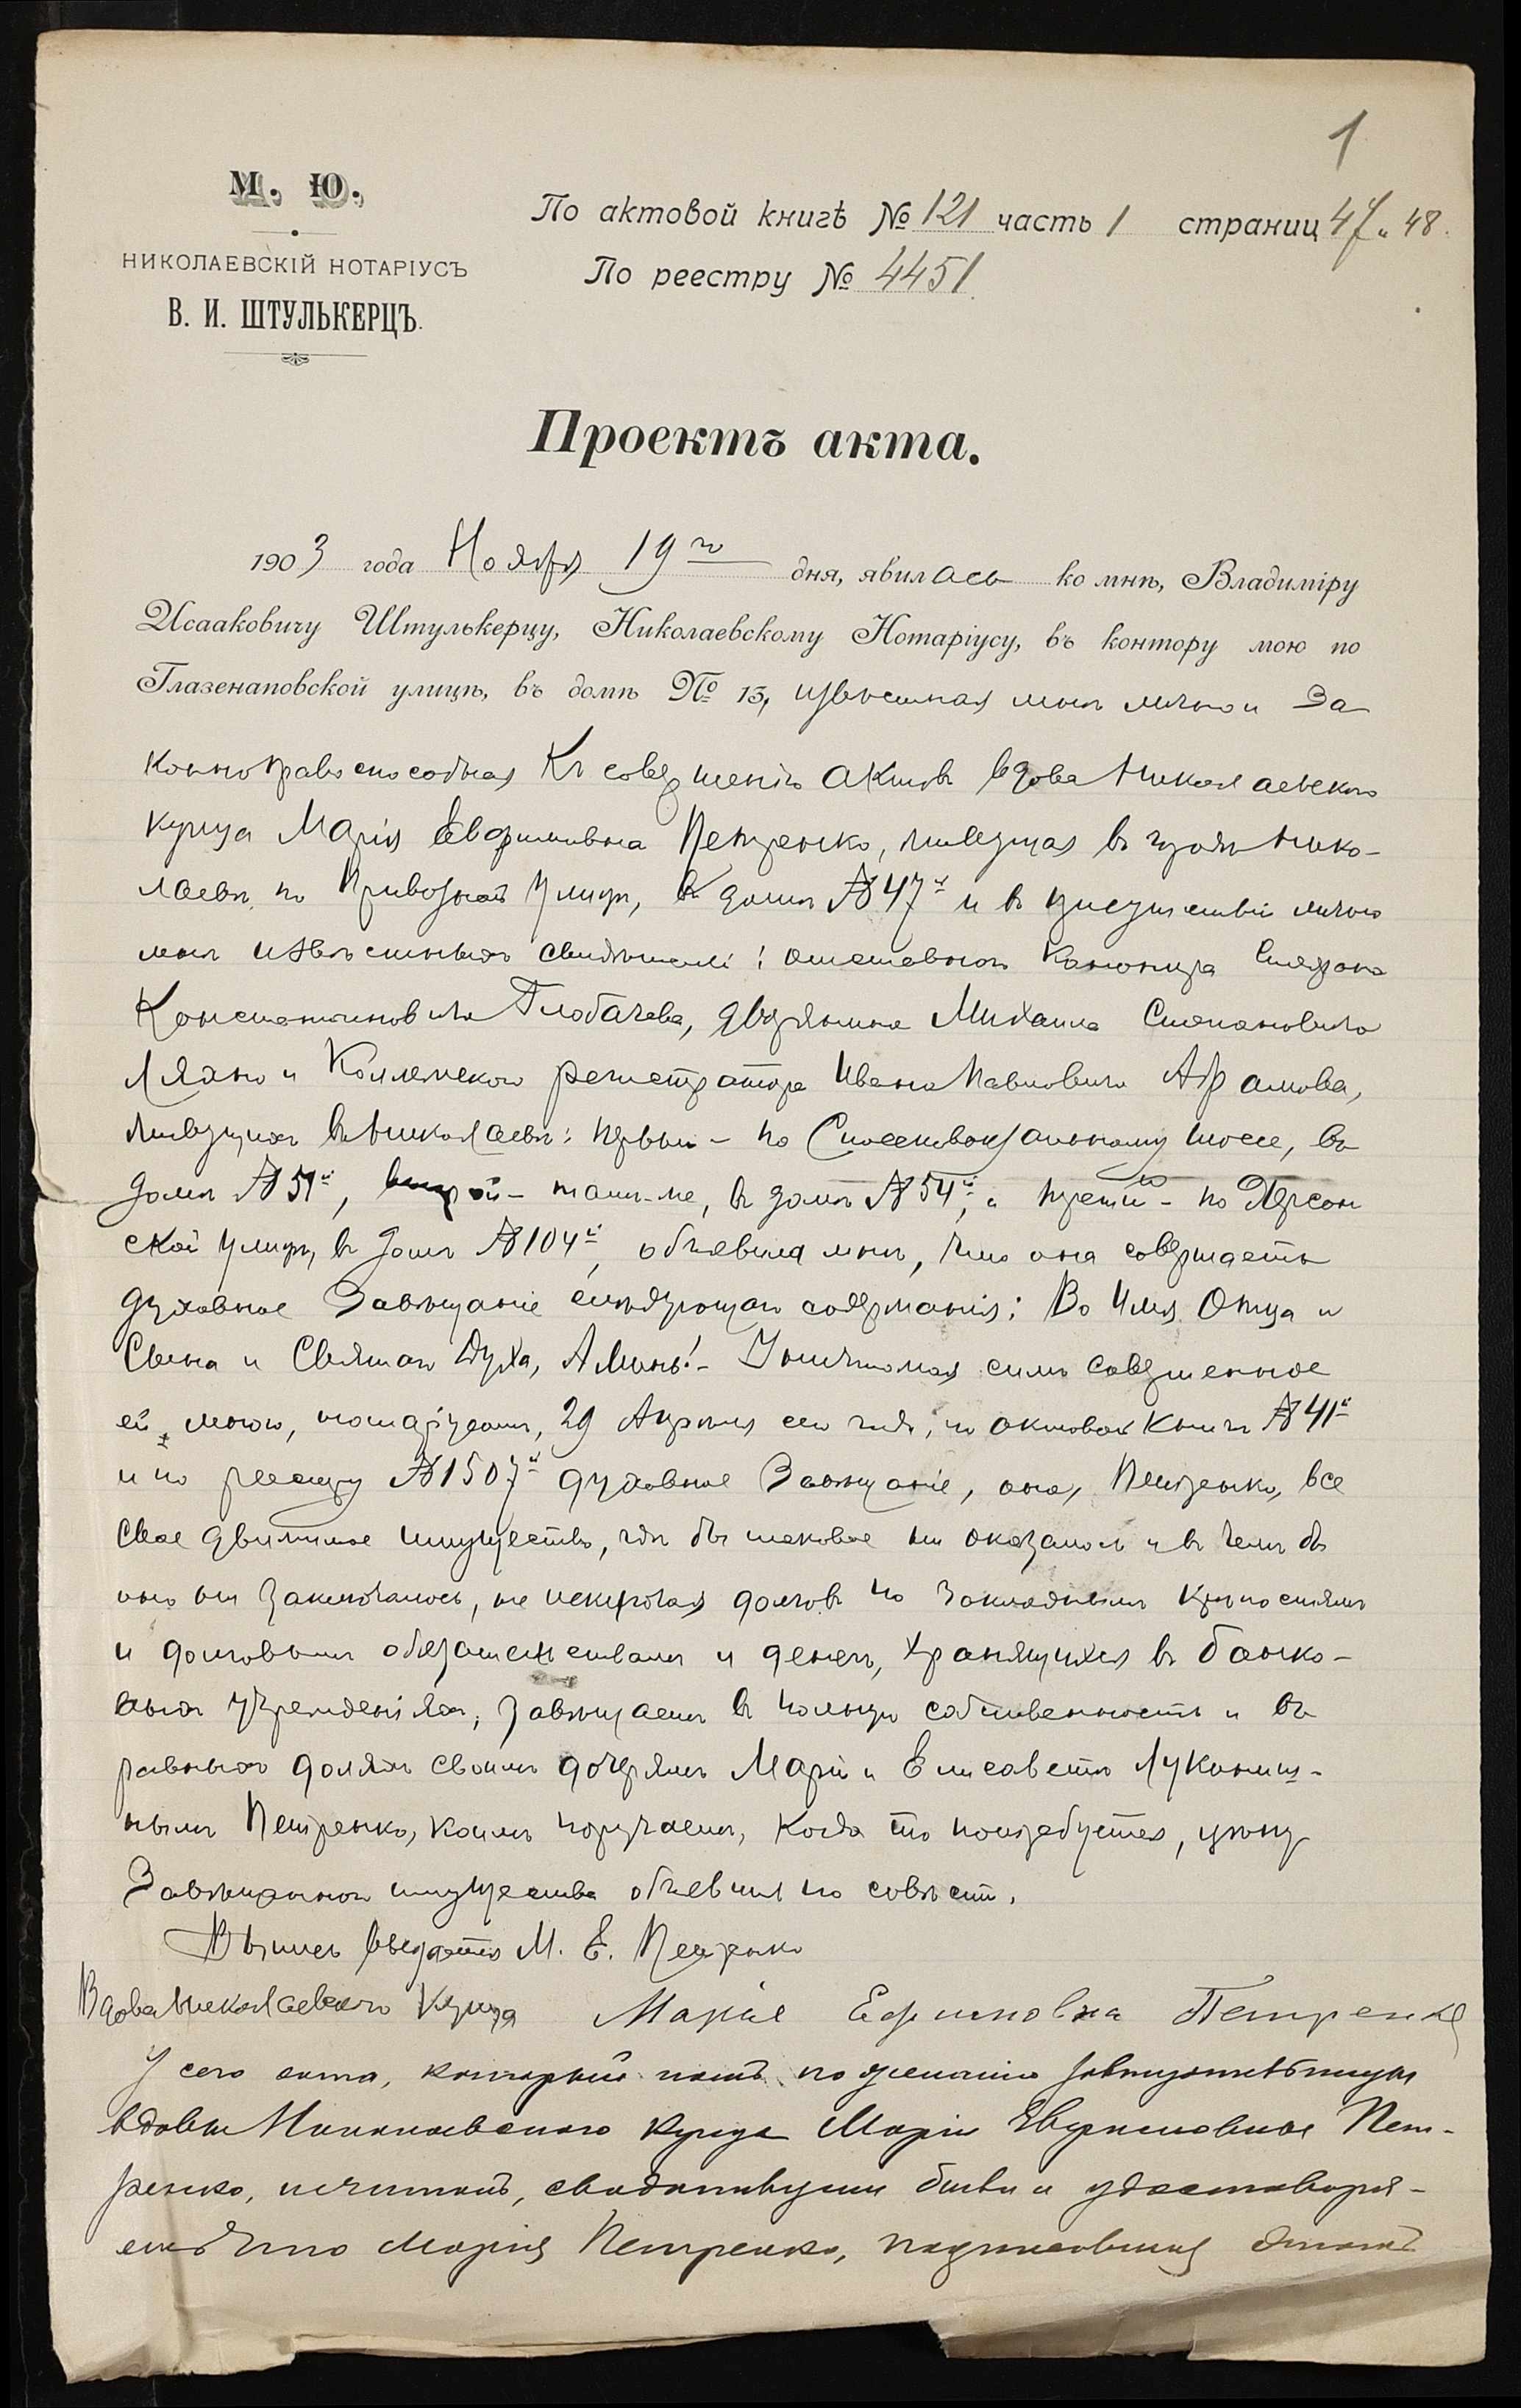 1
М. Ю.
НИКОЛАЕВСКІЙ НОТАРІУСЪ
В. И. ШТУЛЬКЕРЦЪ.
По актовой книгѣ № 121 часть 1 страниц 47 и 48.
По реестру № 4451
Проектъ акта.
1903 года Ноября 19го дня, явилась ко мнѣ, Владиміру
Исааковичу Штулькерцу, Николаевскому Нотаріусу, въ контору мою по
Глазенаповской улицѣ, въ домѣ № 13, извѣстная мнѣ лично и за
коннправоспособная къ совершенію актовъ вдова Николаевскаго
купца Марія Евфимовна Петренко, живущая въ городѣ Нико-
лаевѣ, по Привозной улицѣ, въ домѣ № 47й и въ присутствіи лично
мнѣ извѣстныхъ свидѣтелей: отставного Степана
Константиновича Глобачева, дворянина Михаила Степановича
Ляхно и Коллежскаго регистратора Ивана Павловича Абрамова,
живущихъ въ Николаевѣ: первый - по шоссе, въ
домѣ № 51й, второй - тамъ-же, въ домѣ № 54й, и третій - по Херсон
ской улицѣ, въ домѣ № 104й, объявила мнѣ, что она совершаетъ
духовное завѣщаніе слѣдующаго содержанія: Во Имя Отца и
Сына и Святаго Духа, Аминь! - Уничтожая симъ совершенное
ей мною, нотаріусомъ, 29 Апрѣля сего года, по актовой книгѣ № 41й
и по реестру № 1507й духовное завѣщаніе, она, Петренко, все
свое движимое имущество, гдѣ бы таковое ни оказалось и въ чемъ бы
оно ни заключалось, не исключая долговъ по закладнымъ крѣпостямъ
и долговымъ обязательствамъ и денегъ, хранящихся въ банко-
выхъ учрежденіяхъ, завѣщаетъ въ полную собственность и въ
равныхъ доляхъ своимъ дочерямъ Маріи и Елисаветѣ Лукинич-
нымъ Петренко, коимъ поручаетъ, когда то потребуется, цѣну
завѣщаннаго имущества объявить по совѣсти.
Выпись выдать М. Е. Петренко
Вдова Николаевскаго Купца Марія Ефимовна Петренко
У сего акта, который намъ по желанію завѣщательницы
вдовы Николаевскаго купца Маріи Евфимовны Пет-
ренко, прочитанъ, свидѣтелями были и удостовѣря-
емъ что Марія Петренко, подписавшая этотъ